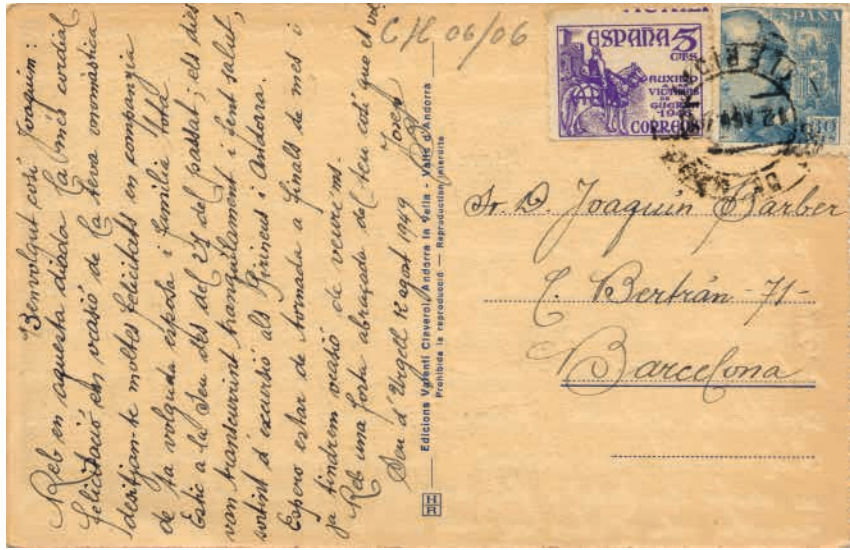 Benvolgut cosí Joaquim:
Reb en aquesta diada la més cordial
felicitació en ocasió de la teva onomàstica
desitjan-te moltes felicitats en companyia
de ta volguda esposa i familia tota
Estic a la Seu des del 27 del passat; els dies
van transcurrint tranquilament i fent salut,
sortint d'excursió als Pirineus i Andorra.
Espero estar de tornada a finals de mes i
ja tindrem ocasió de veure'ns.
Reb una forta abraçada del teu cosí que et vol
Josep
Seu d'Urgell 12 agost 1949
Edicions Valentí Claverol, Andorra la Vella - Valls d'Andorra
Prohibida la reproducció - Reproduction interdite
HR
C/C 06/06
ESPAÑA 5
CTS
AUXILIO
VICTIMAS
DE
GUERRA
CORREOS
ESPAÑA
Sr. D. Joaquín Barber
C. Bertrán - 71 -
Barcelona